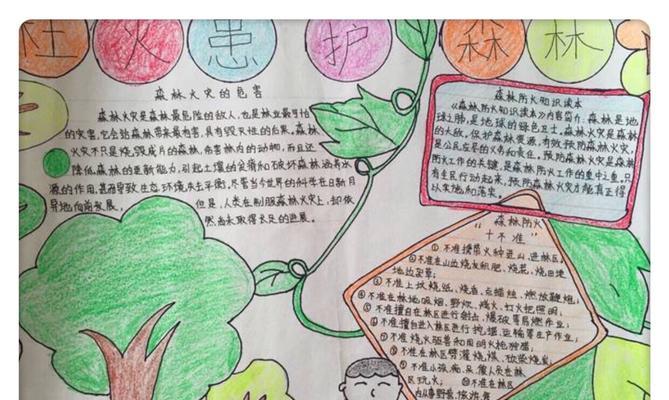 杜 火 患 护 森 林
森林火灾的危害
森林火灾是森林最危险的敌人,也是林业最可怕
的灾害,它会给森林带来最有害,具有毁灭性的后果,森林
火灾不只是烧毁成片的森林,伤害林内的动物,而且还
降低森林的更新能力,引起土壤的贫瘠和破坏森林涵养水
源的作用,甚而导致生态环境失去平衡,尽管当今世界的科学在日新月
异地向前发展,
但是,人类在制服森林火灾上,却依
然尚未取得长足的进展。
森林防火知识读本
《森林防火知识读本》内容简介:森林是地
球之肺,是地球的绿色卫士,森林火灾是森林
的大敌,保护森林资源,有效预防森林火灾,
是公民应尽的义务和责任,预防森林火灾是森林
防火工作的关键,是森林防火工作的重中之重,只
有全民行动起来,预防森林火灾才能真正得
以实施和落实。
森林防火
“十不准”
①不准携带火种进山,进林区;
②不准在山边烧灰积肥,烧荒,烧田埂
地边杂草;
③不准上坟烧纸、烧香、点蜡烛、燃放鞭炮;
④不准在林地吸烟、野炊、烧火、打火把照明;
⑤不准擅自在林区进行勘查、爆破等易燃作业;
⑥不准擅自进入林区进行挖掘、运输等生产作业;
⑦不准烧火驱兽和用明火枪狩猎;
⑧不准在林区劈灌烧炭、砍柴烧炭;
⑨不准小孩、痴、呆、傻人员在林
区玩火;
⑩不准在林区